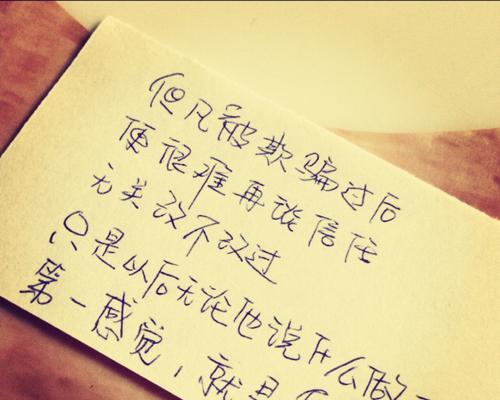 但凡被欺骗过后
便很难再谈信任
无关改不改过
只是以后无论他说什么做
第一感觉，就是